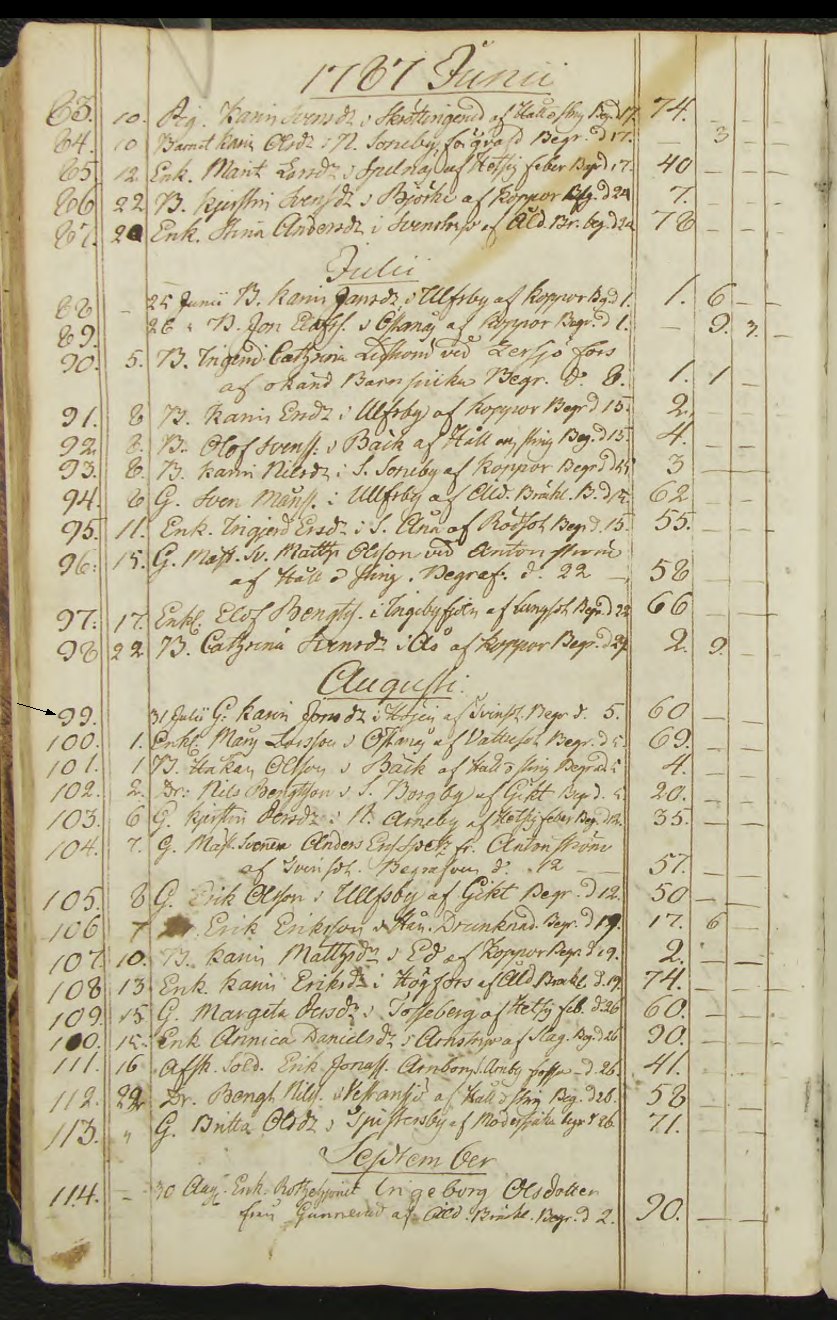 1787 Junii
83. 10. Pig. Karin Svensdr i af Håll o styng Beg. d 17. 74. – –
84. 10 Barnet Karin Olsdr i N. Sonneby, förqvafd Begr. d 17. – 3 –
85. 12. Enk. Marit Larsdr i af Hetsig feber Begr d 17. 40 – –
86 22 B. Kjerstin Svensdr i Björke af Koppor Beg. d 24 7. – –
87. 20 Enk. Stina Andersdr i af Åld. Br. beg. d 24 78 – –
Julii
88 – 25 Junii B. Karin Jansdr i Ulfsby af Koppor Beg d 1. 1. 6 –
89. 26 " B. Jon i Östanås af Koppor Begr. d 1. – 9. 3.
90. 5. B. Ingrid Cathrina ved Lersjö fors
af okänd Barnsjuka Begr. d. 8. 1. 1 –
91. 8 B. Karin Ersdr i Ulfsby af Koppor Begr d 15. 2. – –
92. 8. B. Olof Svenss. i Bäck af Håll och styng Beg. d 15. 4. – –
93. 8. B. Karin Nilsdr i S. Sonneby af Koppor Begr d 15 3 – –
94. 8 G. Sven Månss. i Ullfsby af Åld. Bräkl. B. d 15. 62 – –
95. 11. Enk. Ingjerd Ersdr i S. Åna af Rödsot Begr d. 15. 55. – –
96. 15. G. Mast. Sv. Matths Olsson ved Antonström
af Håll o styng. Begraf. d. 22 – 58 – –
97. 17. Enkl. Elof Bengts. i Ingebyfjoln af Lungsot Begr d 22 66 – –
98 22 B. Cathrina Svensdr i Ås af Koppor Begr. d 29 2. 9. –
Augusti.
99. 31 Julii G. Karin Jonsdr i Högen af Tvinsot. Begr d. 5. 60 – –
100. 1. Enkl. Måns Larsson i Östanås af Vattusot Begr. d 5. 69. – –
101. 1 B. Håkan Olsson i Bäck af Håll o styng Begr d 5 4. – –
102. 2. Dr. Nils Bengtsson i S. Borgby af Gikt Begr d. 5. 20. – –
103. 6 G. Kjerstin Persdr i N. Arneby af Hetsig feber Beg. d 12. 35. – –
104. 7. G. Mast. Svennen Anders fr. Antonström
af Tvinsot. Begrafven d. 12 – 57. – –
105. 8 G. Erik Olsson i Ullfsby af Gikt Begr. d 12. 50 – –
106 7 Erik Eriksson i Hån. Drunknad. Begr. d 19. 17. 6 –
107. 10. B. Karin Mattsdr i Ed af Koppor Begr. d 19. 2. – –
108 13 Enk. Karin Eriksdr i Högfors af Åld Bräkl. d. 19. 74. – –
109. 15 G. Margeta Persdr i Tosseberg af Hetsig feb. d 26 60. – –
110. 15. Enk Annica Danielsdr i af Slag. Beg. d 26 90. – –
111. 16 Afsk. Sold. Erik Jonass. Arnbom, i. Arnby – d 26. 41. – –
112. 22 Dr. Bengt Nilss. i Vestansjö af Håll o styng Beg. d 26. 58 – –
113. " G. Britta Olsdr i Spistersby af Modersjuka begr d 26. 71. – –
September
114. – 30 Aug. Enk. Ingeborg Olsdotter
från Gunnerud af Åld. Bräkl. Begr. d 2. 90. – –